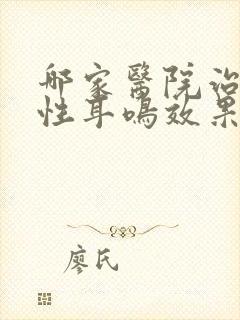 那家醫院治
性耳鳴效果
廖氏